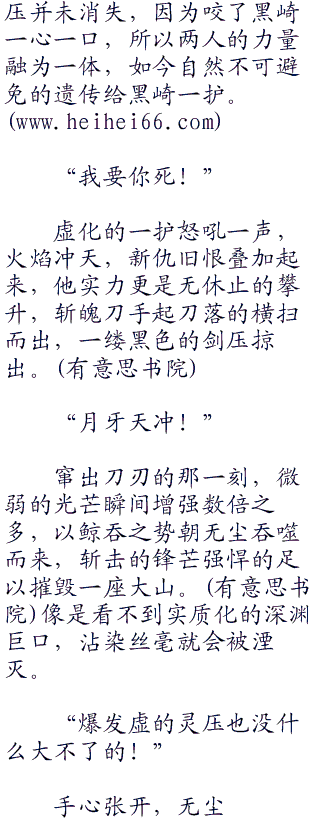 压并未消失，因为咬了黑崎
一心一口，所以两人的力量
融为一体，如今自然不可避
免的遗传给黑崎一护。
(www.heihei66.com)
“我要你死！”
虚化的一护怒吼一声，
火焰冲天，新仇旧恨叠加起
来，他实力更是无休止的攀
升，斩魄刀手起刀落的横扫
而出，一缕黑色的剑压掠
出。(有意思书院)
“月牙天冲！”
窜出刀刃的那一刻，微
弱的光芒瞬间增强数倍之
多，以鲸吞之势朝无尘吞噬
而来，斩击的锋芒强悍的足
以摧毁一座大山。(有意思书
院)像是看不到实质化的深渊
巨口，沾染丝毫就会被湮
灭。
“爆发虚的灵压也没什
么大不了的！”
手心张开，无尘